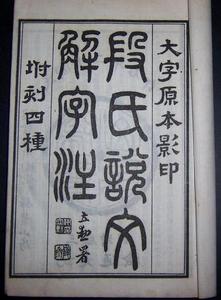 大字原本影印
段氏說文
解字注
署
坿刻四種